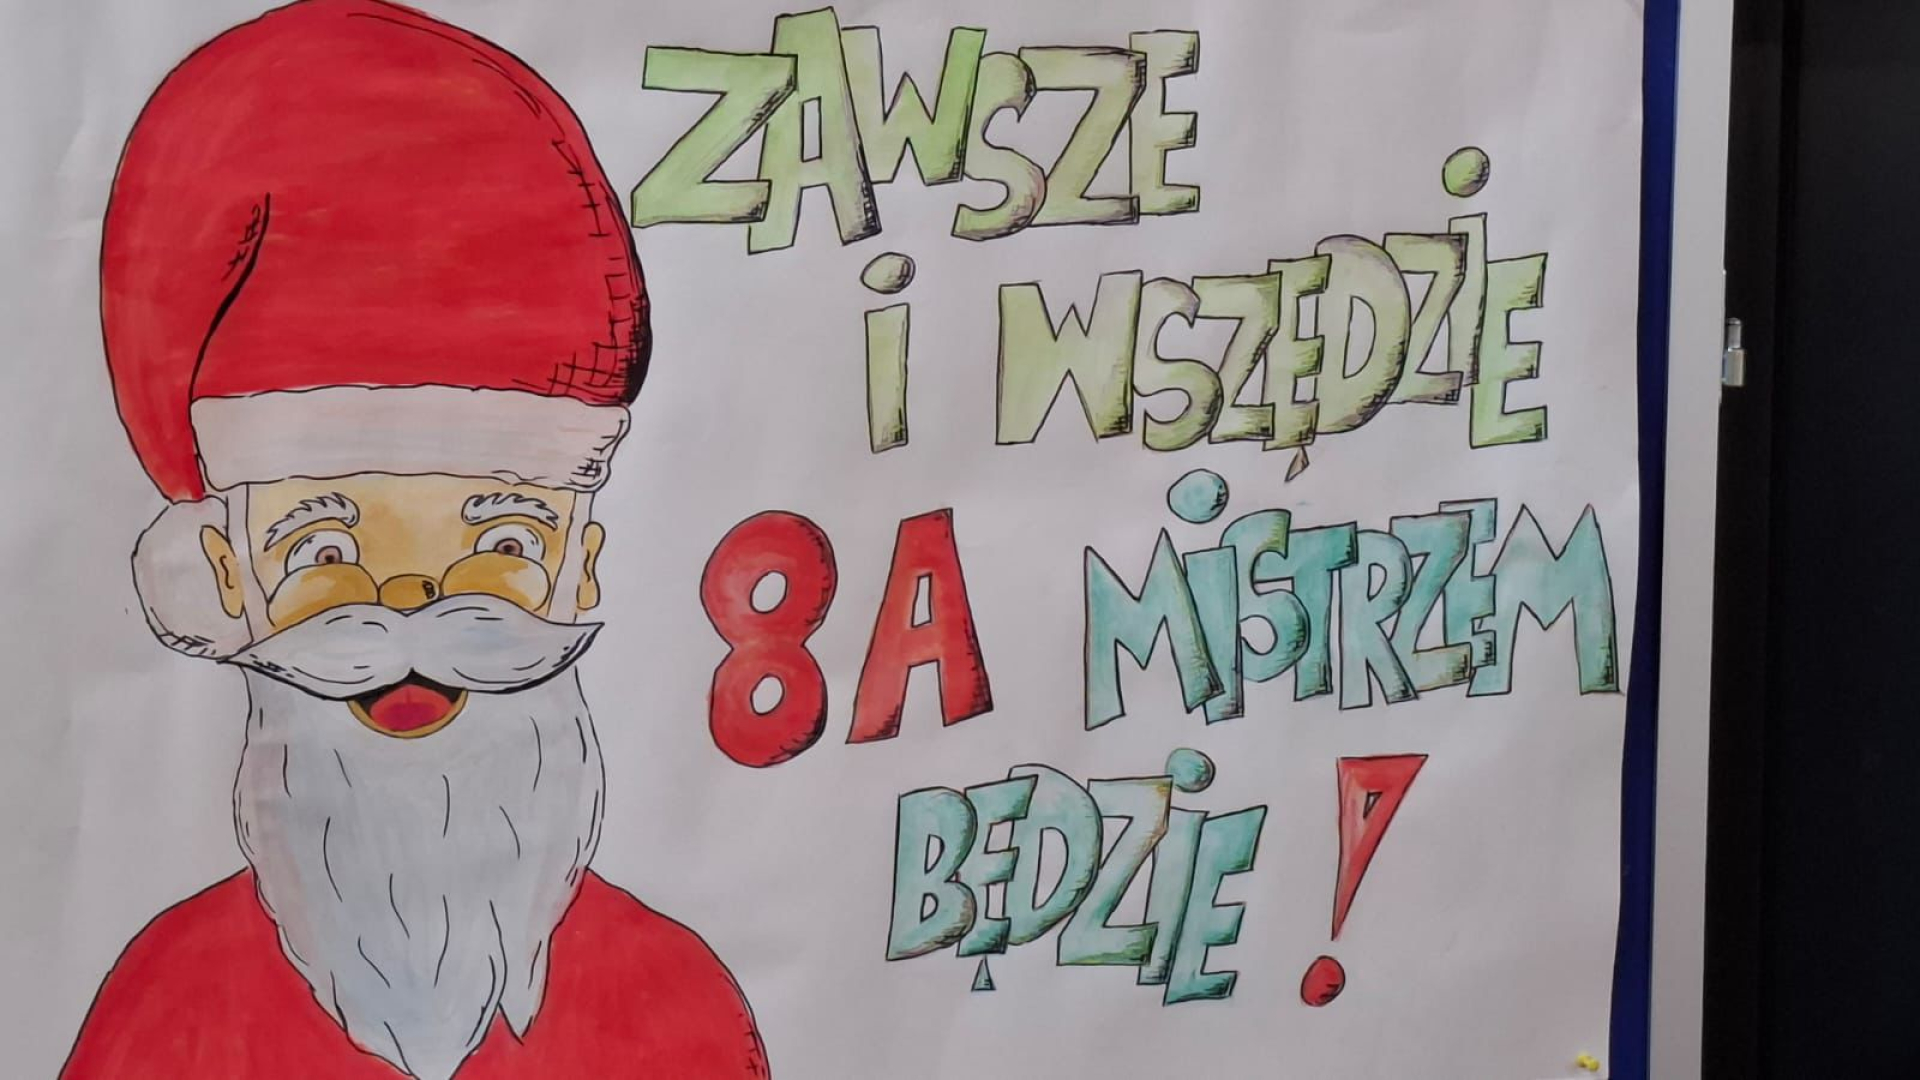 ZAWSZE
i WSZĘDZiE
8A MiSTRZEM
BĘDZiE!